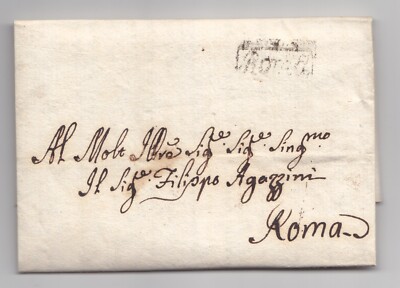 Al Molt Illre Sigre Sigre Singmo
Il Sigre Filippo Agazzini
Roma